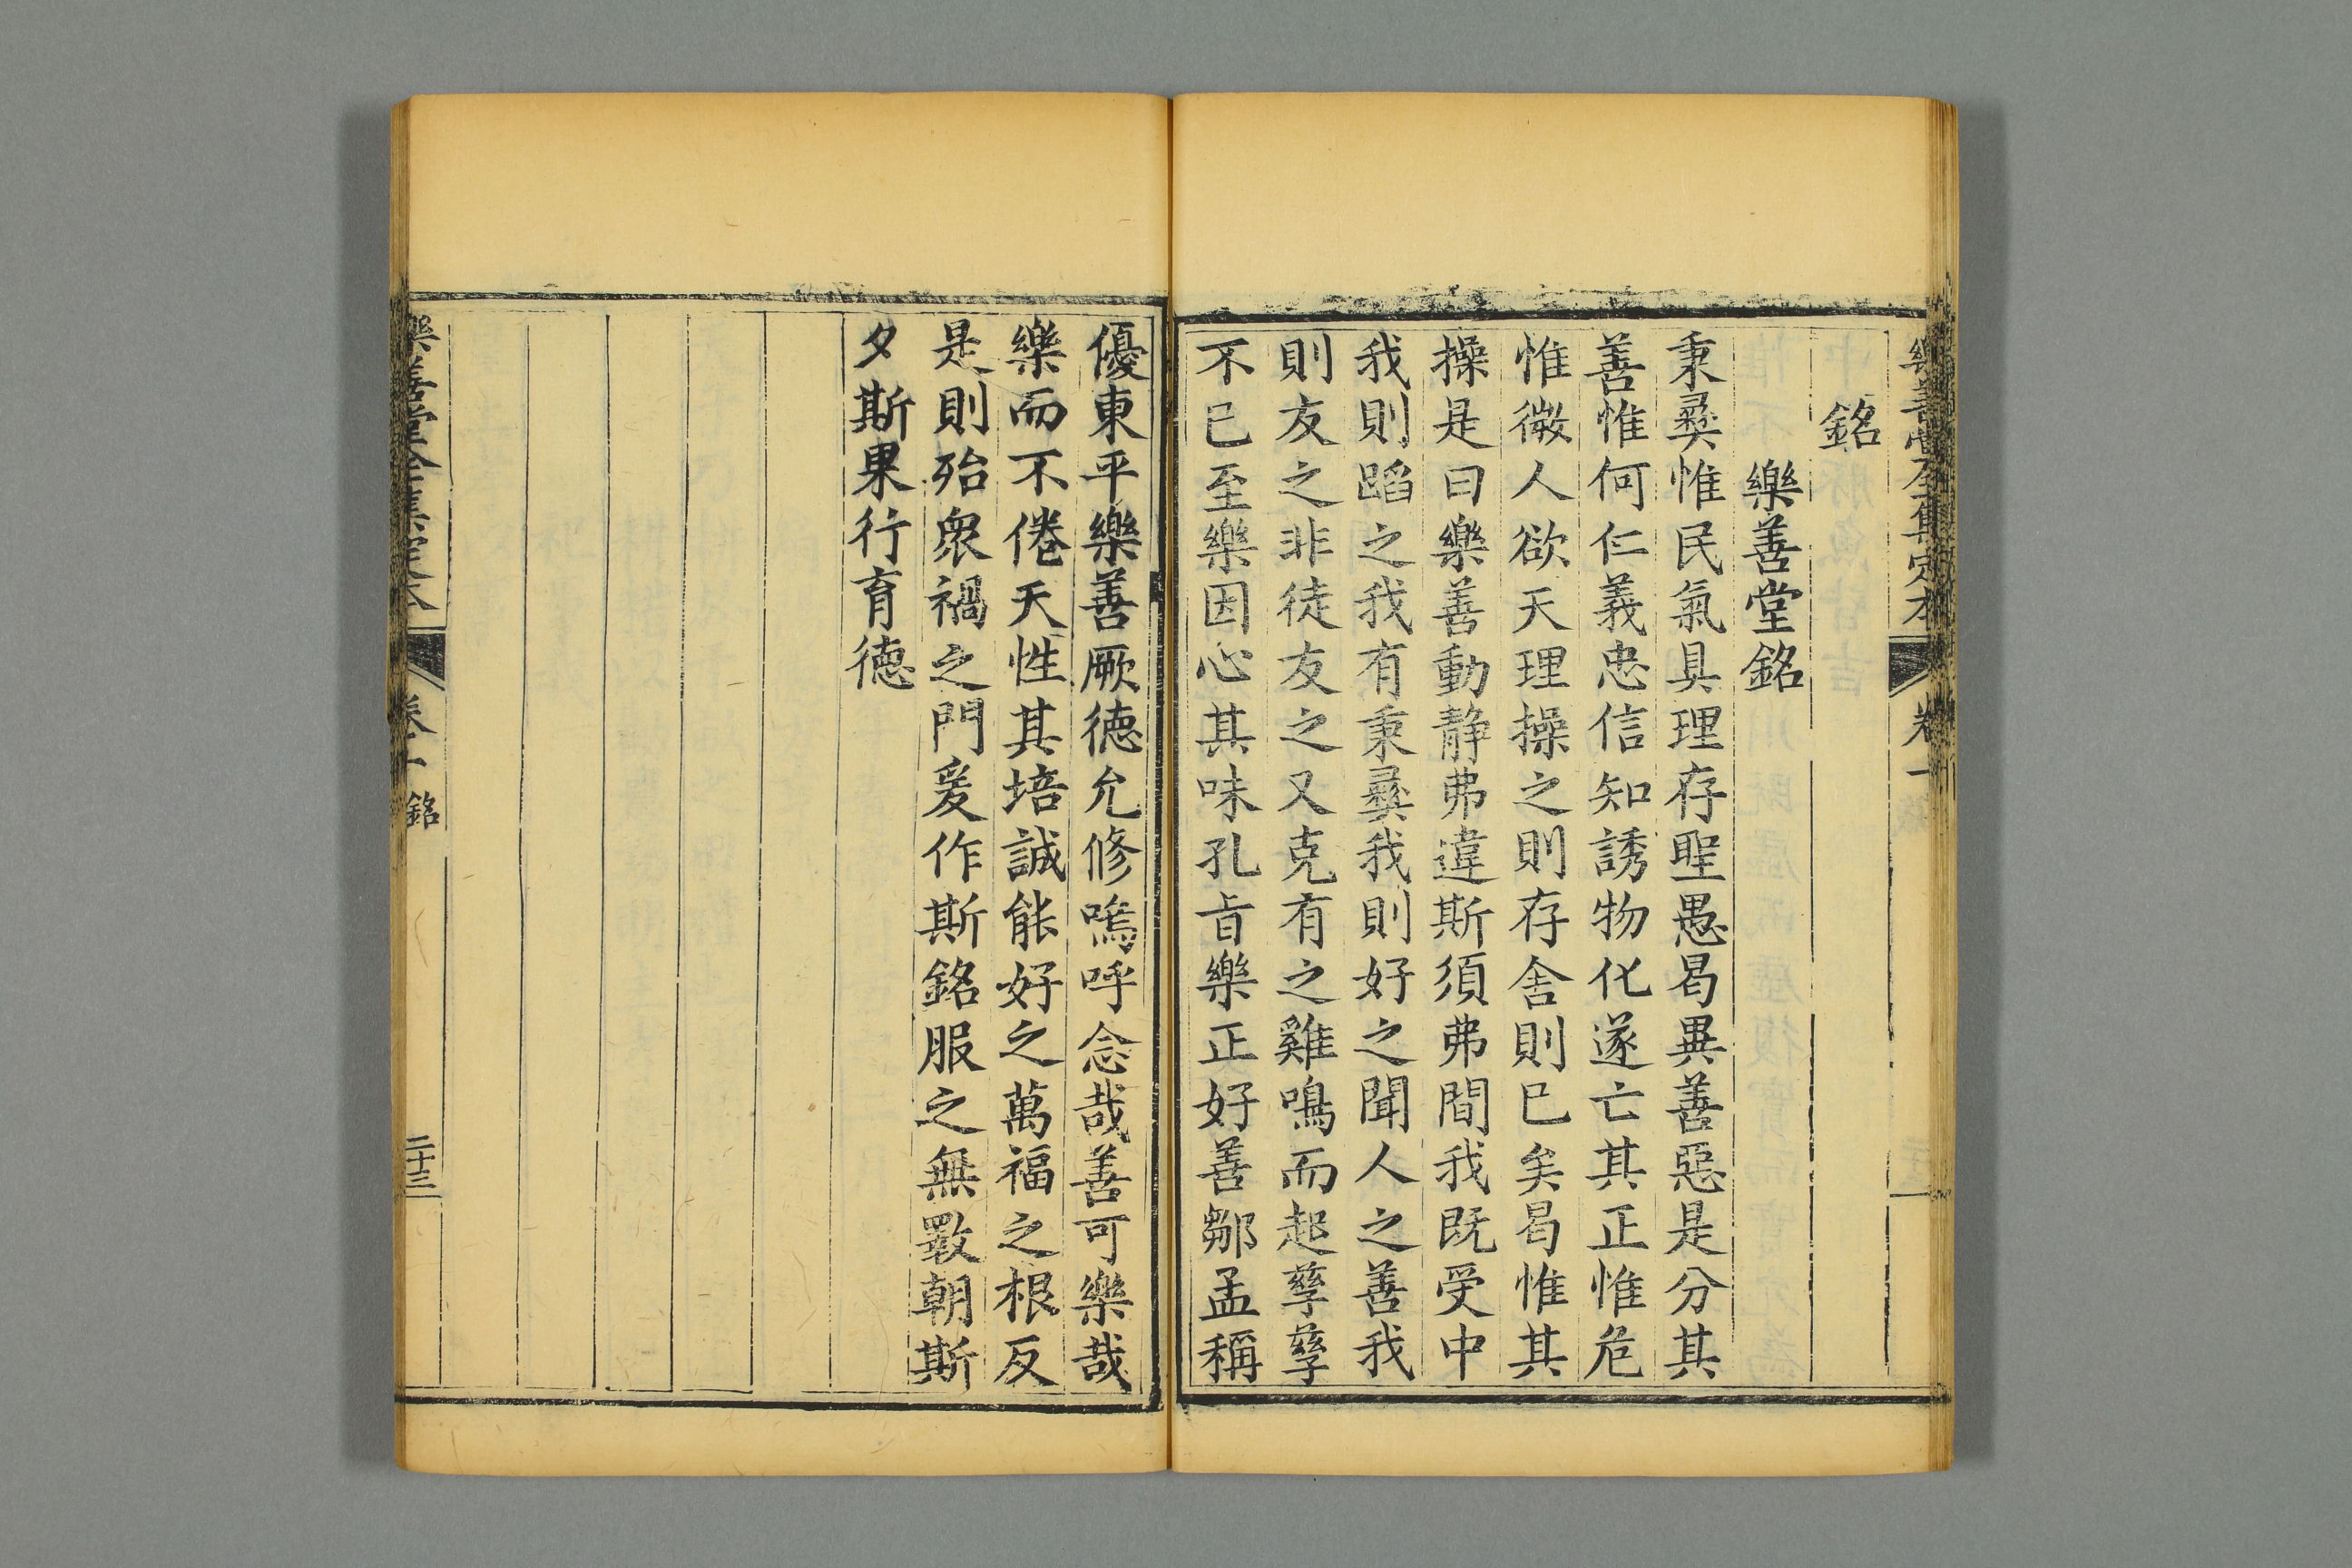 樂善堂全集定本
卷十
銘
樂善堂銘
秉彝惟民氣具理存聖愚曷異善惡是分其
善惟何仁義忠信知誘物化遂亡其正惟危
惟微人欲天理操之則存舍則已矣曷惟其
操是曰樂善動靜弗違斯須弗間我既受中
我則蹈之我有秉彝我則好之聞人之善我
則友之非徒友之又克有之雞鳴而起孳孳
不已至樂因心其味孔旨樂正好善鄒孟稱
優東平樂善厥德允修嗚呼念哉善可樂哉
樂而不倦天性其培誠能好之萬福之根反
是則殆衆禍之門爰作斯銘服之無斁朝斯
夕斯果行育德
樂善堂全集定本
卷十
銘
二十三